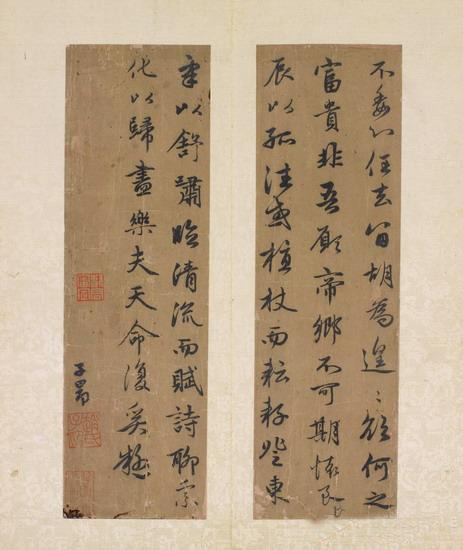 不委心任去留胡為遑〻欲何之
富貴非吾願帝鄉不可期懷良
辰以孤往或植杖而耘耔登東
皋以舒嘯臨清流而賦詩聊乘
化以歸盡樂夫天命復奚疑
子昂